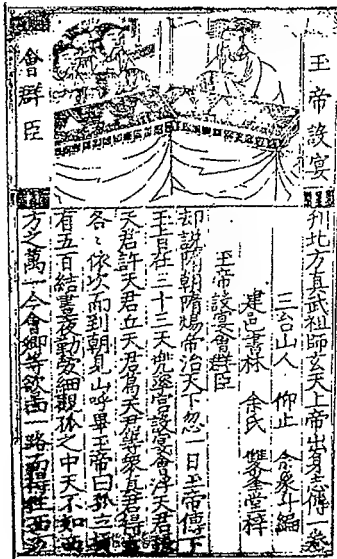 玉帝設宴
會群臣
刋北方真武祖師玄天上帝出身志傳一卷
三台山人 仰止 余象斗編
建邑書林 余氏 雙峯堂梓
玉帝設宴會群臣
却說隋朝隋煬帝治天下忽一日玉帝傳下
玉旨在三十三天兜率宮設宴會淨天君
天君許天君丘天君葛天君衆真君得旨
各々依次而到朝見山呼畢玉帝曰孤三
有五百結晝夜勤勞細觀孤之中天不如西
方之萬一今會卿等欲啚一路